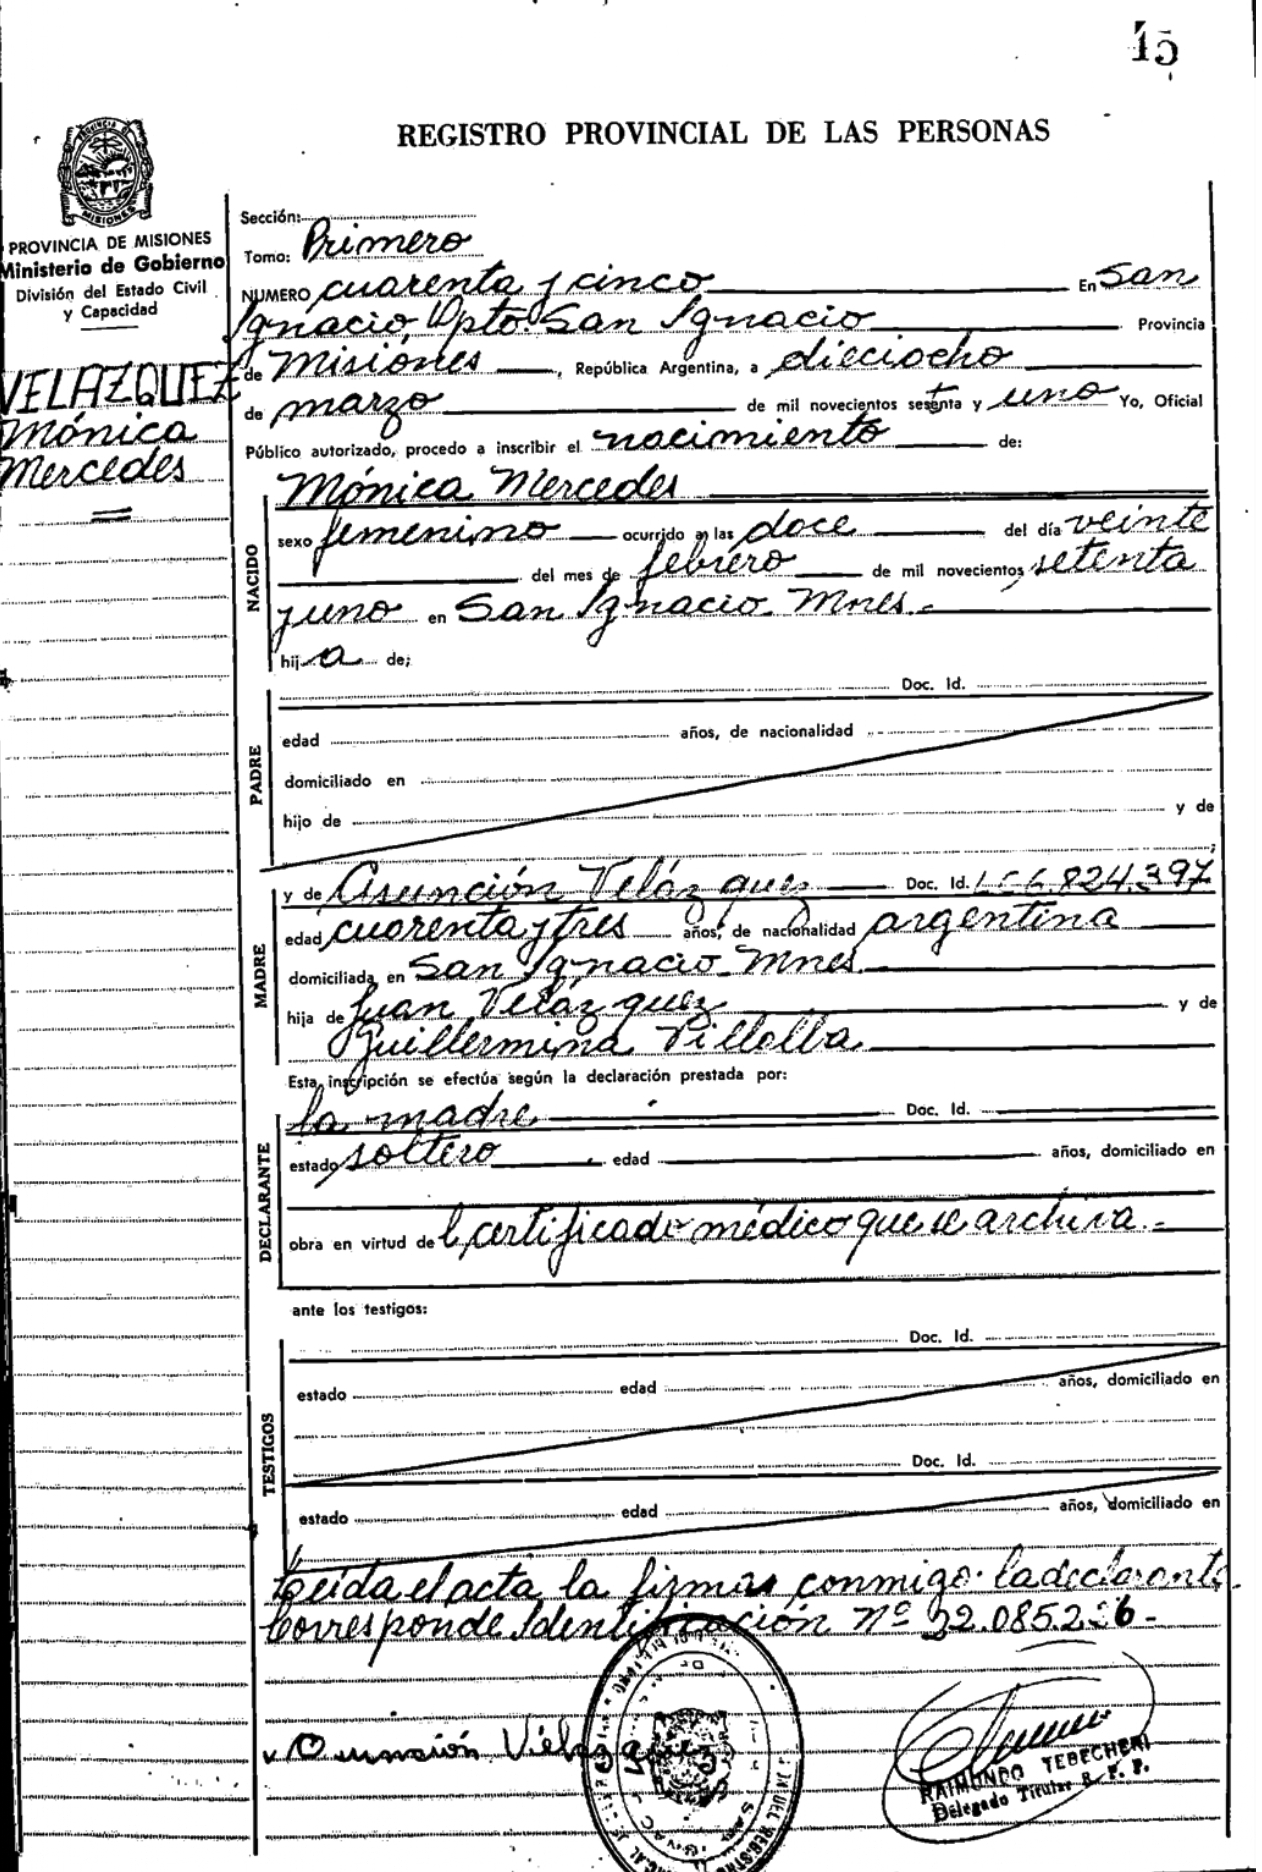 45
REGISTRO PROVINCIAL DE LAS PERSONAS
PROVINCIA DE MISIONES
Ministerio de Gobierno
División del Estado Civil
y Capacidad
VELAZQUEZ
Mónica
Mercedes
Sección:
Tomo: Primero
NUMERO cuarenta y cinco En San
Ignacio, Dpto. San Ignacio Provincia
de Misiones, República Argentina, a dieciocho
de marzo de mil novecientos setenta y uno Yo, Oficial
Público autorizado, procedo a inscribir el nacimiento de:
NACIDO
Mónica Mercedes
sexo femenino ocurrido a las doce del día veinte
del mes de febrero de mil novecientos setenta
y uno en San Ignacio. Mnes.-
hija de;
PADRE
Doc. Id.
edad años, de nacionalidad
domiciliado en
hijo de y de
;
MADRE
y de Asunción Velázquez Doc. Id. 824.397
edad cuarenta y tres años, de nacionalidad argentina
domiciliada en San Ignacio-Mnes.
hija de Juan Velázquez y de
Guillermina Villalba
Esta inscripción se efectúa según la declaración prestada por:
DECLARANTE
la madre Doc. Id.
estado soltero edad años, domiciliado en
obra en virtud del certificado médico que se archiva.-
ante los testigos:
TESTIGOS
Doc. Id.
estado edad años, domiciliado en
Doc. Id.
estado edad años, domiciliado en
Leída el acta la firman conmigo. la declarante.
Corresponde Identificación Nº
Asunción Velázquez
RAIMUNDO TEBECHERI
Delegado Titular R. P. P.